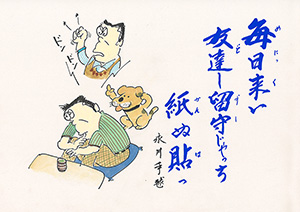 毎日来い
友達ー留守じゃっち
紙ぬ貼っ
ドンドン